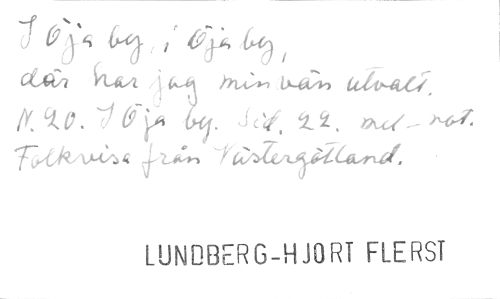 I Öja by, i Öja by,
där har jag min vän utvalt.
N. 20. I Öja by. Sid. 22. mel-not.
Folkvisa från Västergötland.
LUNDBERG-HJORT FLERST